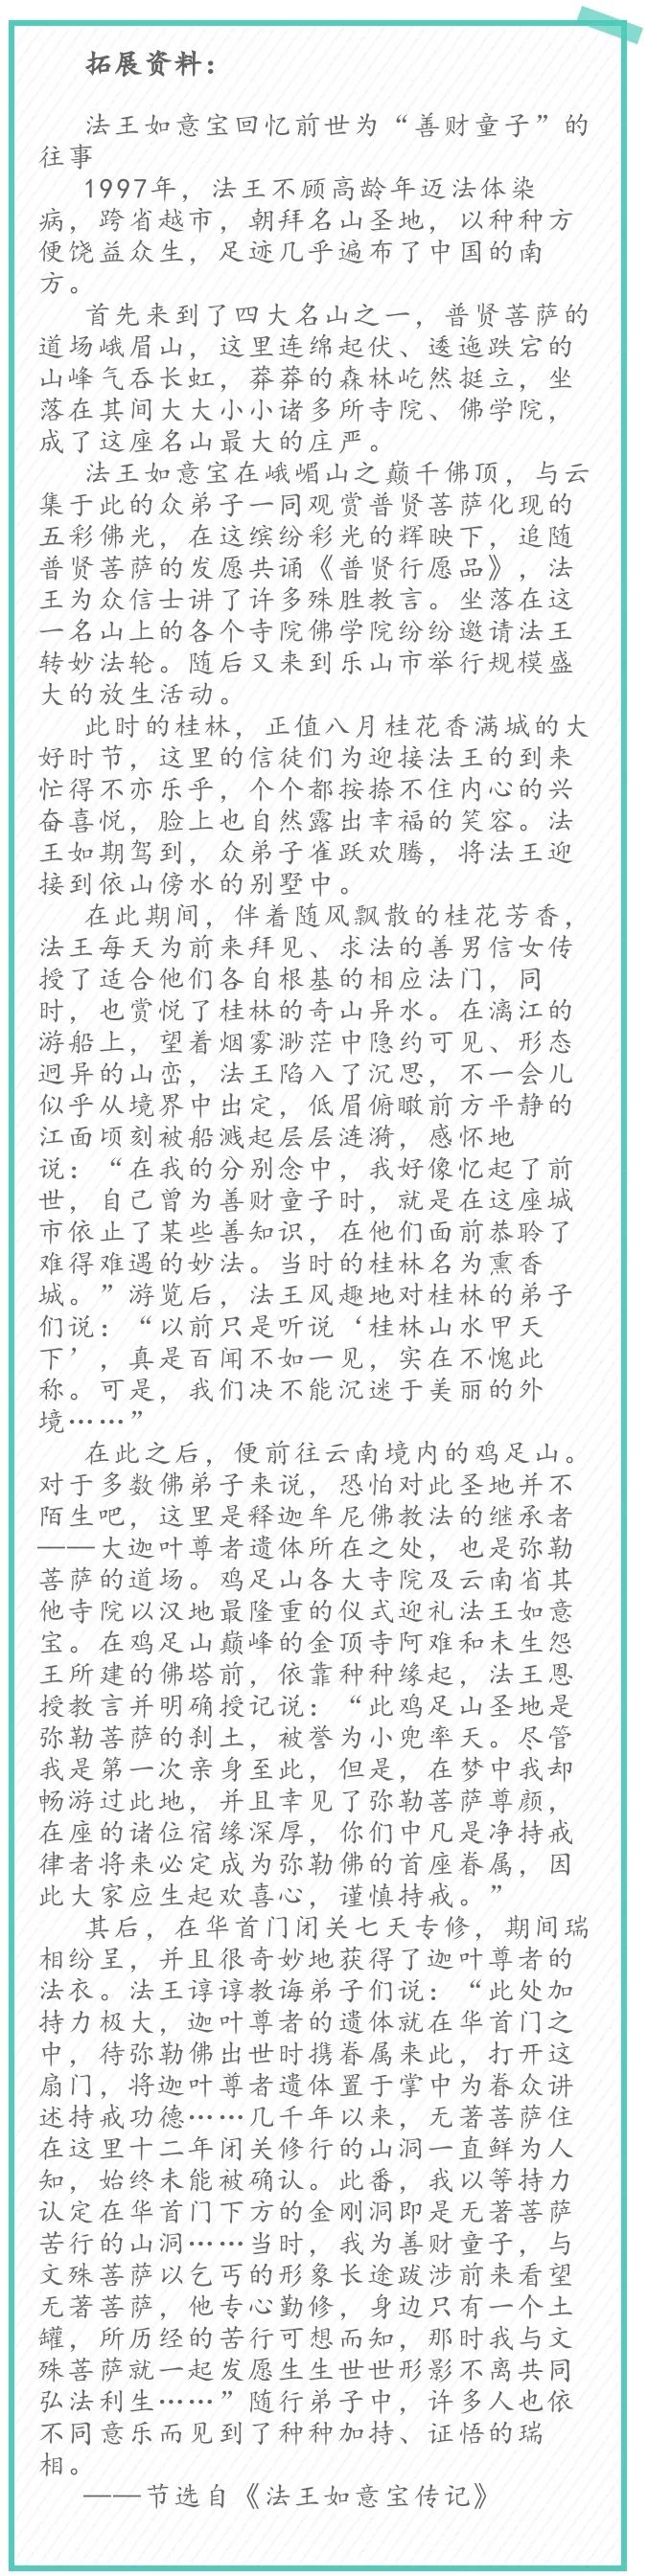 拓展资料：
法王如意宝回忆前世为“善财童子”的
往事
1997年，法王不顾高龄年迈法体染
病，跨省越市，朝拜名山圣地，以种种方
便饶益众生，足迹几乎遍布了中国的南
方。
首先来到了四大名山之一，普贤菩萨的
道场峨眉山，这里连绵起伏、逶迤跌宕的
山峰气吞长虹，莽莽的森林屹然挺立，坐
落在其间大大小小诸多所寺院、佛学院，
成了这座名山最大的庄严。
法王如意宝在峨嵋山之巅千佛顶，与云
集于此的众弟子一同观赏普贤菩萨化现的
五彩佛光，在这缤纷彩光的辉映下，追随
普贤菩萨的发愿共诵《普贤行愿品》，法
王为众信士讲了许多殊胜教言。坐落在这
一名山上的各个寺院佛学院纷纷邀请法王
转妙法轮。随后又来到乐山市举行规模盛
大的放生活动。
此时的桂林，正值八月桂花香满城的大
好时节，这里的信徒们为迎接法王的到来
忙得不亦乐乎，个个都按捺不住内心的兴
奋喜悦，脸上也自然露出幸福的笑容。法
王如期驾到，众弟子雀跃欢腾，将法王迎
接到依山傍水的别墅中。
在此期间，伴着随风飘散的桂花芳香，
法王每天为前来拜见、求法的善男信女传
授了适合他们各自根基的相应法门，同
时，也赏悦了桂林的奇山异水。在漓江的
游船上，望着烟雾渺茫中隐约可见、形态
迥异的山峦，法王陷入了沉思，不一会儿
似乎从境界中出定，低眉俯瞰前方平静的
江面顷刻被船溅起层层涟漪，感怀地
说：“在我的分别念中，我好像忆起了前
世，自己曾为善财童子时，就是在这座城
市依止了某些善知识，在他们面前恭聆了
难得难遇的妙法。当时的桂林名为熏香
城。”游览后，法王风趣地对桂林的弟子
们说：“以前只是听说‘桂林山水甲天
下’，真是百闻不如一见，实在不愧此
称。可是，我们决不能沉迷于美丽的外
境……”
在此之后，便前往云南境内的鸡足山。
对于多数佛弟子来说，恐怕对此圣地并不
陌生吧，这里是释迦牟尼佛教法的继承者
——大迦叶尊者遗体所在之处，也是弥勒
菩萨的道场。鸡足山各大寺院及云南省其
他寺院以汉地最隆重的仪式迎礼法王如意
宝。在鸡足山巅峰的金顶寺阿难和未生怨
王所建的佛塔前，依靠种种缘起，法王恩
授教言并明确授记说：“此鸡足山圣地是
弥勒菩萨的刹土，被誉为小兜率天。尽管
我是第一次亲身至此，但是，在梦中我却
畅游过此地，并且幸见了弥勒菩萨尊颜，
在座的诸位宿缘深厚，你们中凡是净持戒
律者将来必定成为弥勒佛的首座眷属，因
此大家应生起欢喜心，谨慎持戒。”
其后，在华首门闭关七天专修，期间瑞
相纷呈，并且很奇妙地获得了迦叶尊者的
法衣。法王谆谆教诲弟子们说：“此处加
持力极大，迦叶尊者的遗体就在华首门之
中，待弥勒佛出世时携眷属来此，打开这
扇门，将迦叶尊者遗体置于掌中为眷众讲
述持戒功德……几千年以来，无著菩萨住
在这里十二年闭关修行的山洞一直鲜为人
知，始终未能被确认。此番，我以等持力
认定在华首门下方的金刚洞即是无著菩萨
苦行的山洞……当时，我为善财童子，与
文殊菩萨以乞丐的形象长途跋涉前来看望
无著菩萨，他专心勤修，身边只有一个土
罐，所历经的苦行可想而知，那时我与文
殊菩萨就一起发愿生生世世形影不离共同
弘法利生……”随行弟子中，许多人也依
不同意乐而见到了种种加持、证悟的瑞
相。
——节选自《法王如意宝传记》